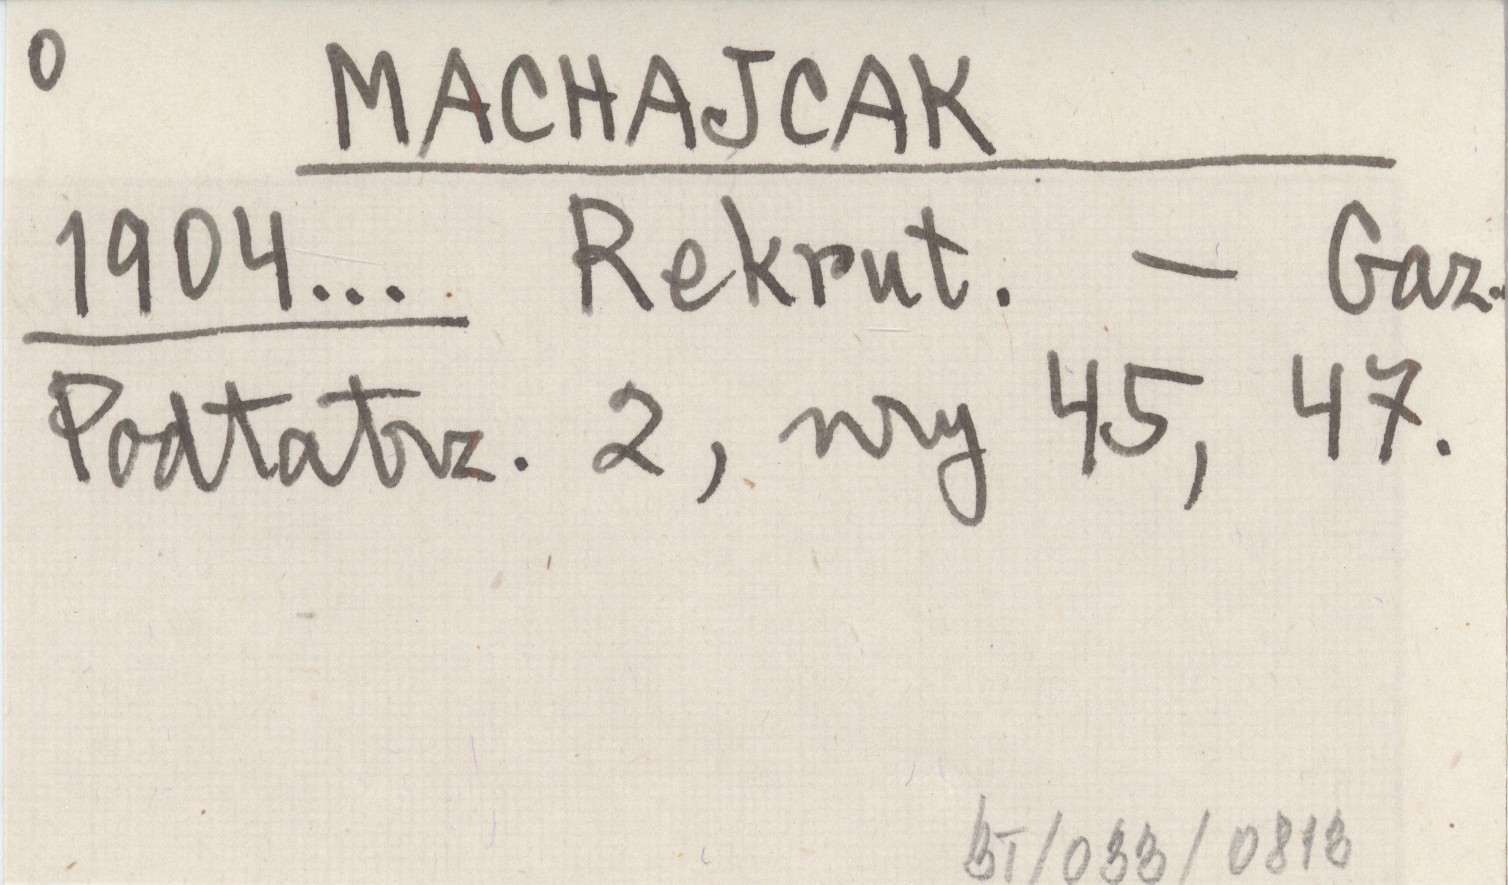 0
MACHAJCAK
1904... Rekrut. — Gaz.
Podtatrz. 2, nry 45, 47.
BT/033/0813